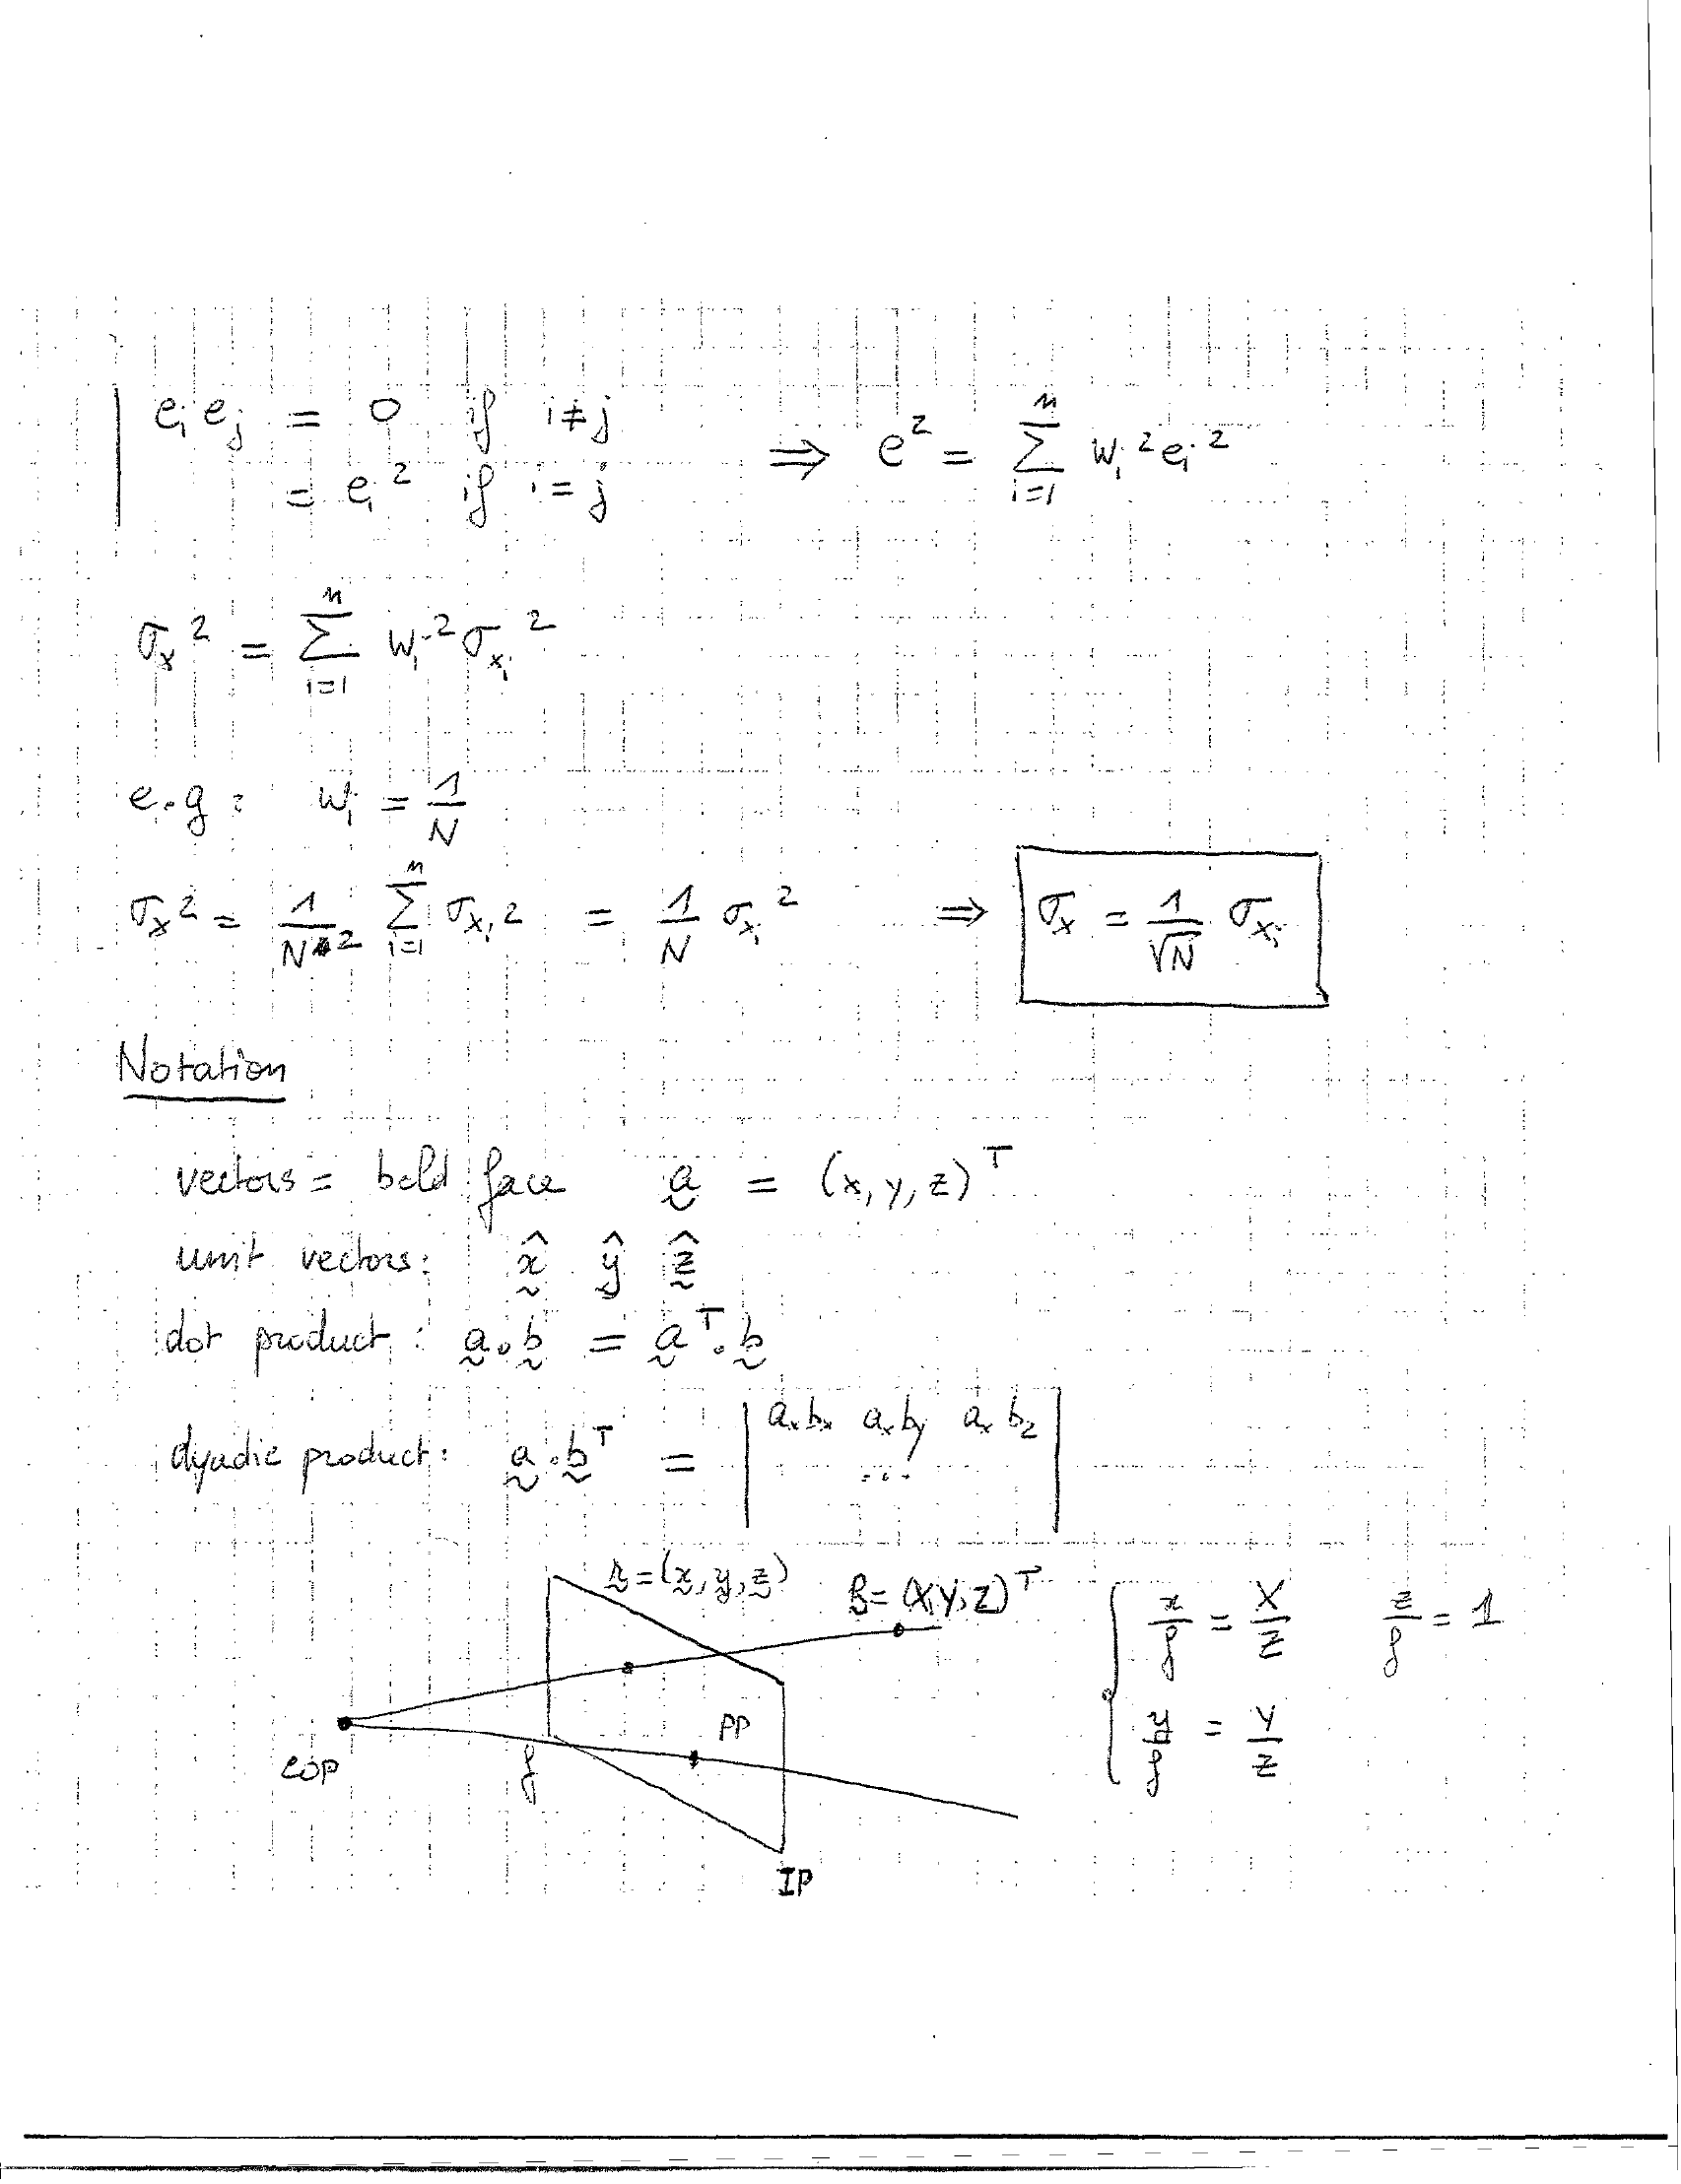 e_i e_j = 0 if i ≠ j
= e_i² if i = j ⇒ e² = Σ_{i=1}^{n} w_i² e_i²
σ_x² = Σ_{i=1}^{n} w_i² σ_{x_i}²
e.g: w_i = 1/N
σ_x² = 1/N² Σ_{i=1}^{n} σ_{x_i}² = 1/N σ_{x_i}² ⇒ σ_x = 1/√N σ_{x_i}
Notation
vectors = bold face a̰ = (x, y, z)^T
unit vectors: x̰̂ ŷ̰ ẑ̰
dot product: a̰ · b̰ = a̰^T · b̰
dyadic product: a̰ · b̰^T = | a_x b_x a_x b_y a_x b_z |
...
= (x̰, y̰, z̰)
= (X, Y, Z)^T
x/f = X/Z z/f = 1
y/f = Y/Z
PP
COP
f
IP